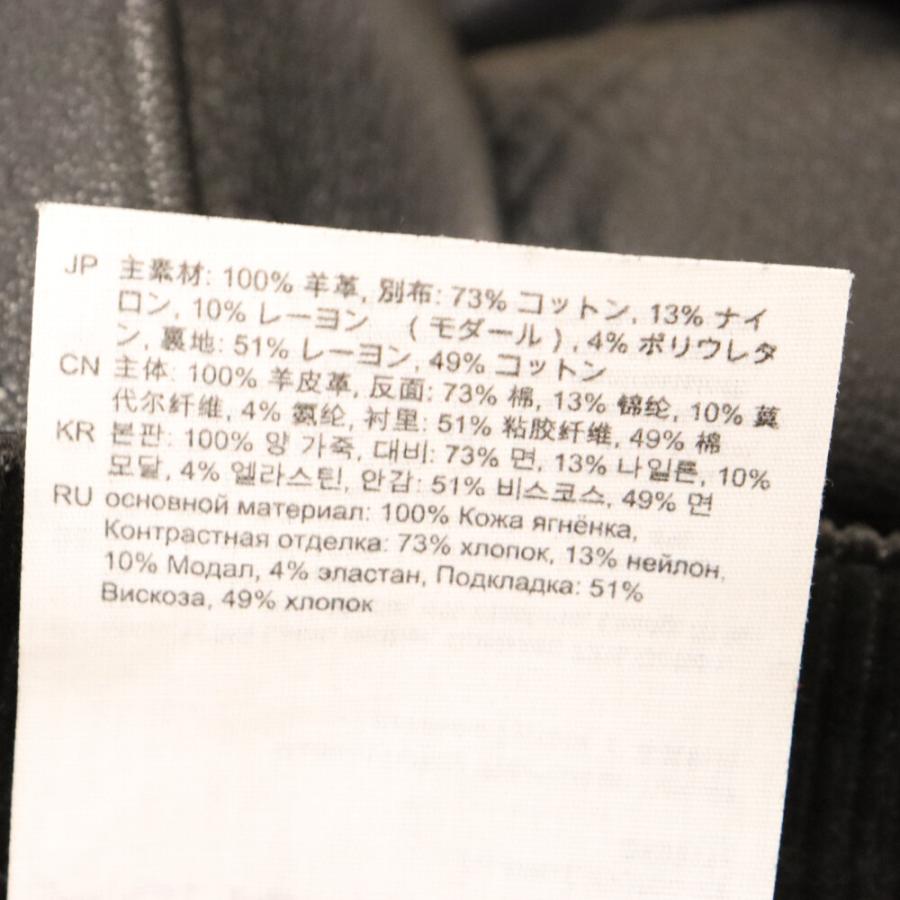 JP 主素材: 100% 羊革, 別布: 73% コットン, 13% ナイ
ロン, 10% レーヨン （モダール）, 4% ポリウレタ
ン, 裏地: 51% レーヨン, 49% コットン
CN 主体: 100% 羊皮革, 反面: 73% 棉, 13% 锦纶, 10% 莫
代尔纤维, 4% 氨纶, 衬里: 51% 粘胶纤维, 49% 棉
KR 본판: 100% 양 가죽, 대비: 73% 면, 13% 나일론, 10%
모달, 4% 엘라스틴, 안감: 51% 비스코스, 49% 면
RU основной материал: 100% Кожа ягнёнка,
Контрастная отделка: 73% хлопок, 13% нейлон,
10% Модал, 4% эластан, Подкладка: 51%
Вискоза, 49% хлопок